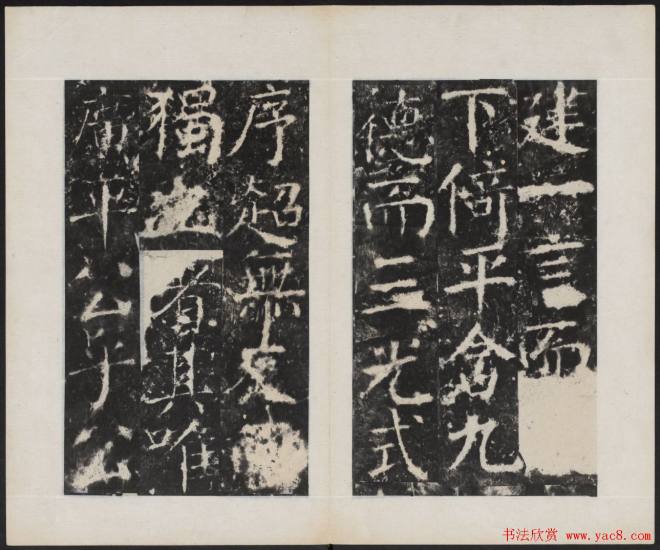 建一言而
下倚平含九
德而三光式
序超無友
獨立者其唯
廣平公乎公
书法欣赏 www.yac8.com